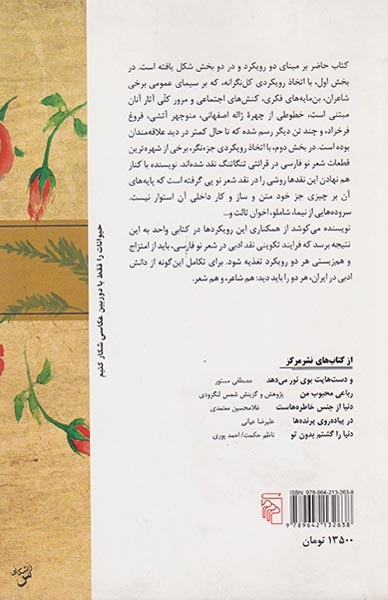 کتاب حاضر بر مبنای دو رویکرد و در دو بخش شکل یافته است. در
بخش اول، با اتخاذ رویکردی کل‌نگرانه، که بر سیمای عمومی برخی
شاعران، بن‌مایه‌های فکری، کنش‌های اجتماعی و مرور کلّی آثار آنان
مبتنی است، خطوطی از چهرهٔ ژاله اصفهانی، منوچهر آتشی، فروغ
فرخزاد، و چند تن دیگر رسم شده که تا حال کمتر در دید علاقه‌مندان
بوده است. در بخش دوم، با اتخاذ رویکردی جزءنگر، برخی از شهره‌ترین
قطعات شعر نو فارسی در قرائتی تنگاتنگ نقد شده‌اند. نویسنده با کنار
هم نهادن این نقدها روشی را در نقد شعر نو پی گرفته است که پایه‌های
آن بر چیزی جز خود متن و ساز و کار داخلی آن استوار نیست.
سروده‌هایی از نیما، شاملو، اخوان ثالث و...
نویسنده می‌کوشد از همکناری این رویکردها در کتابی واحد به این
نتیجه برسد که فرایند تکوینی نقد ادبی در شعر نو فارسی، باید از امتزاج
و هم‌زیستی هر دو رویکرد تغذیه شود. برای تکامل این‌گونه از دانش
ادبی در ایران، هر دو را باید دید: هم شاعر، و هم شعر.
حیوانات را فقط با دوربین عکاسی شکار کنیم
از کتاب‌های نشرمرکز
و دست‌هایت بوی نور می‌دهد مصطفی مستور
رباعی محبوب من پژوهش و گزینش شمس لنگرودی
دنیا از جنس خاطره‌هاست غلامحسین معتمدی
در پیاده‌روی پرنده‌ها علیرضا عباسی
دنیا را گشتم بدون تو ناظم حکمت/ احمد پوری
ISBN: 978-964-213-263-8
9 789642 132638
۱۳۵۰۰ تومان